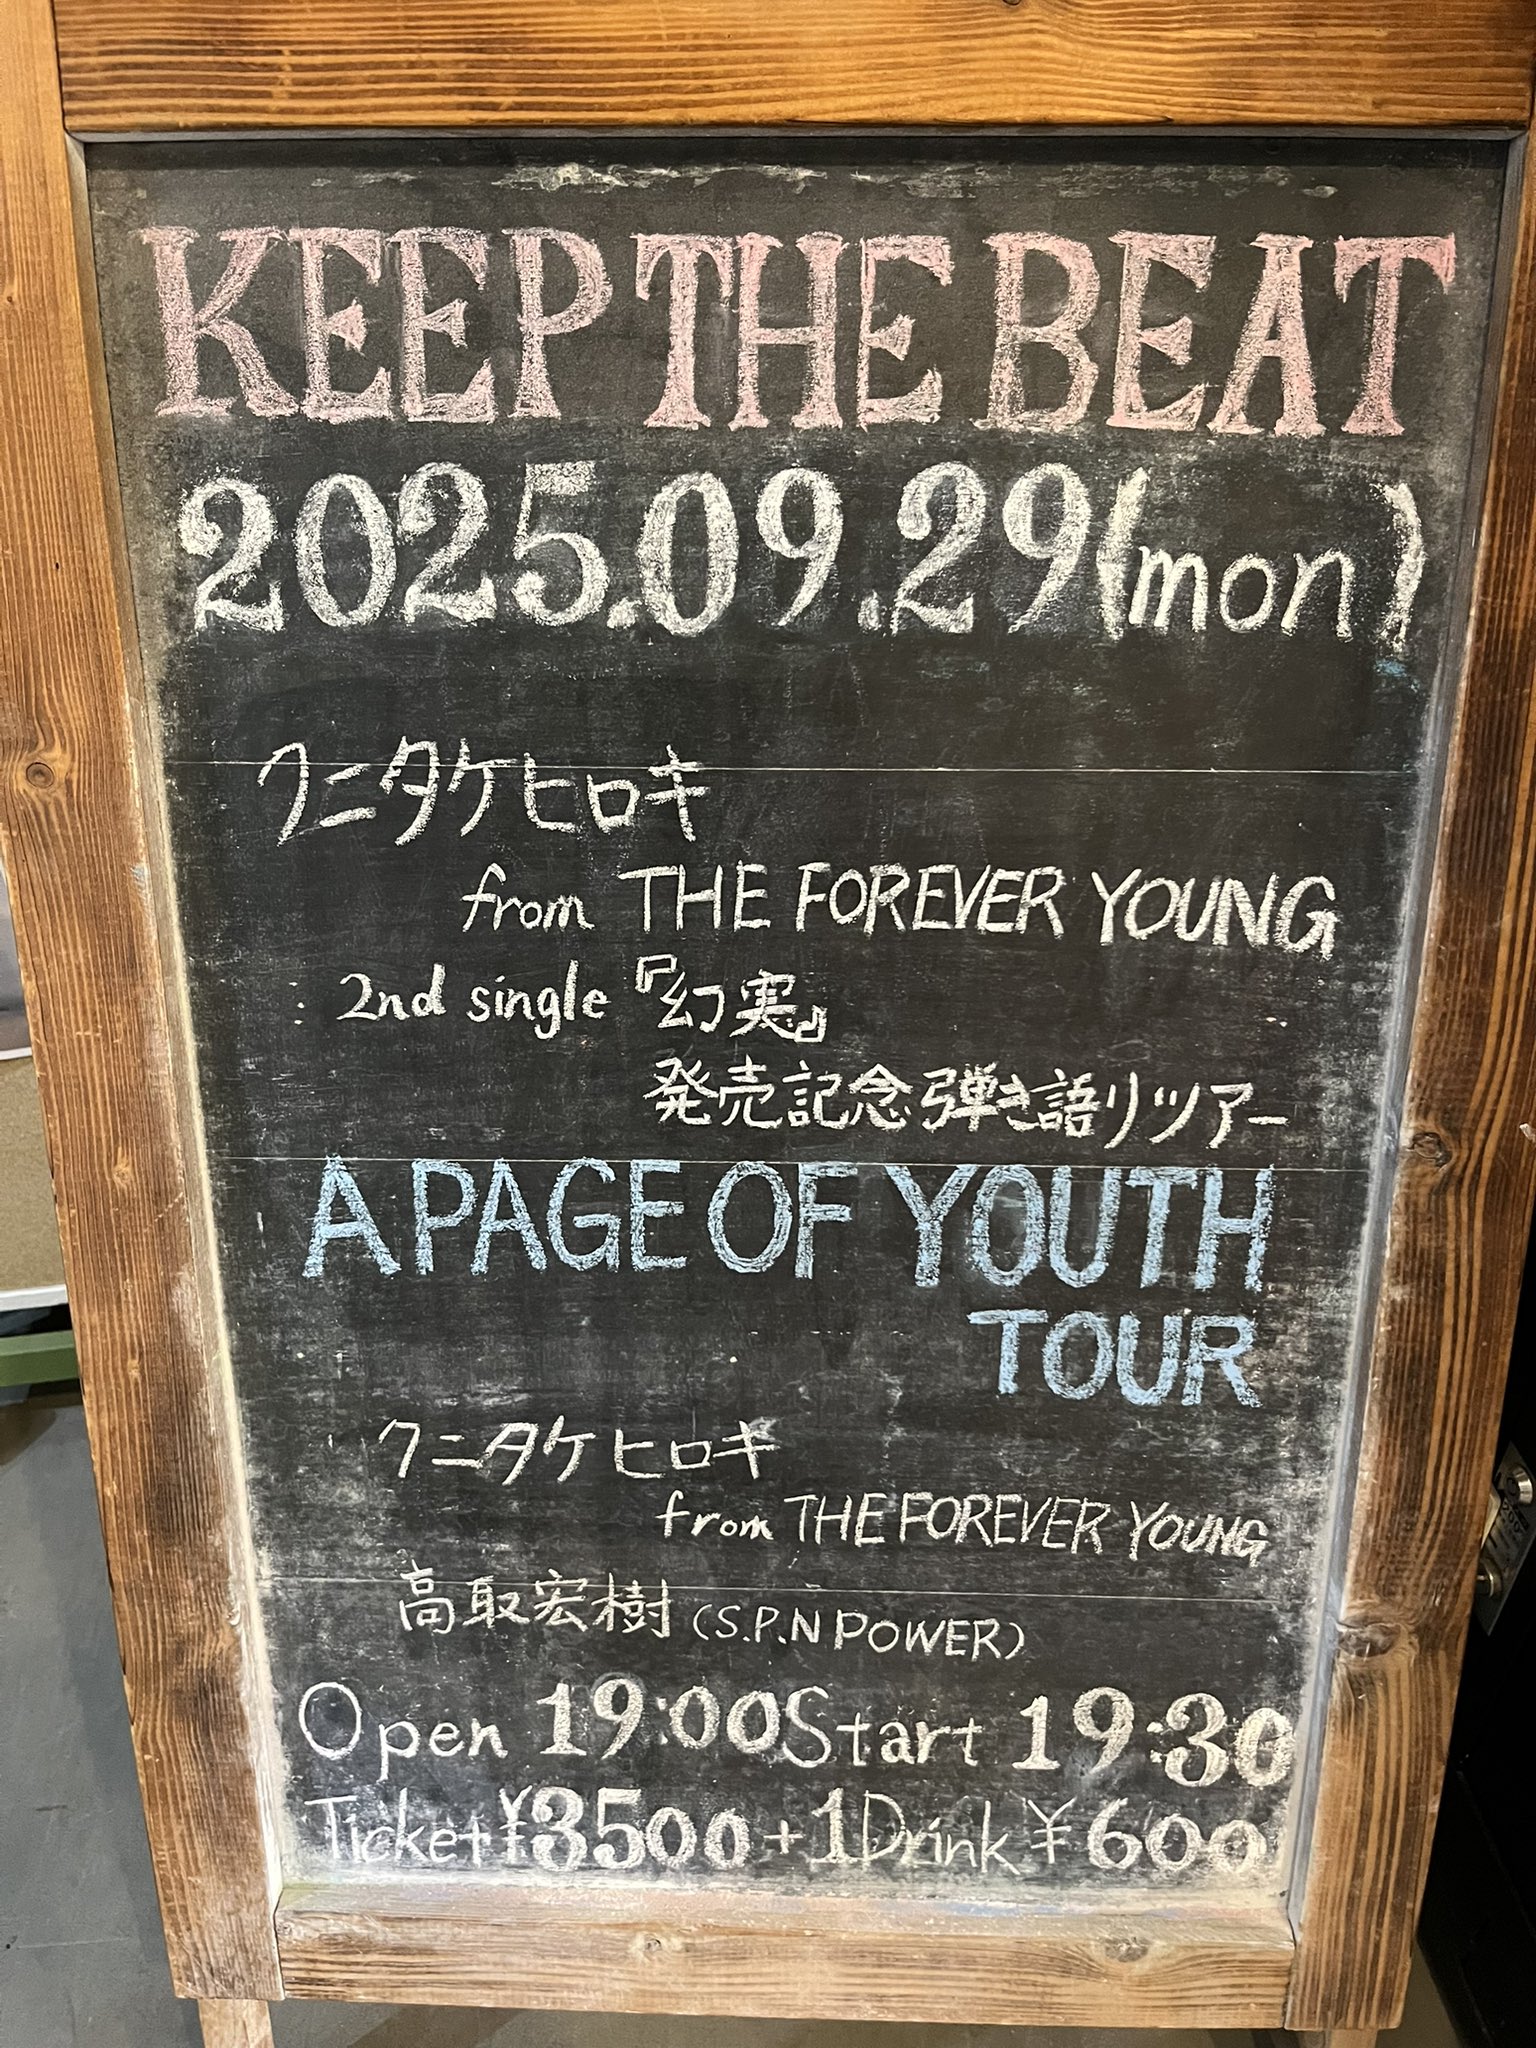 KEEP THE BEAT
2025.09.29(mon)
クニタケヒロキ
from THE FOREVER YOUNG
2nd single『幻実』
発売記念弾き語りツアー
A PAGE OF YOUTH
TOUR
クニタケヒロキ
from THE FOREVER YOUNG
高取宏樹(S.P.N POWER)
Open 19:00 Start 19:30
Ticket ¥3500+1Drink ¥600